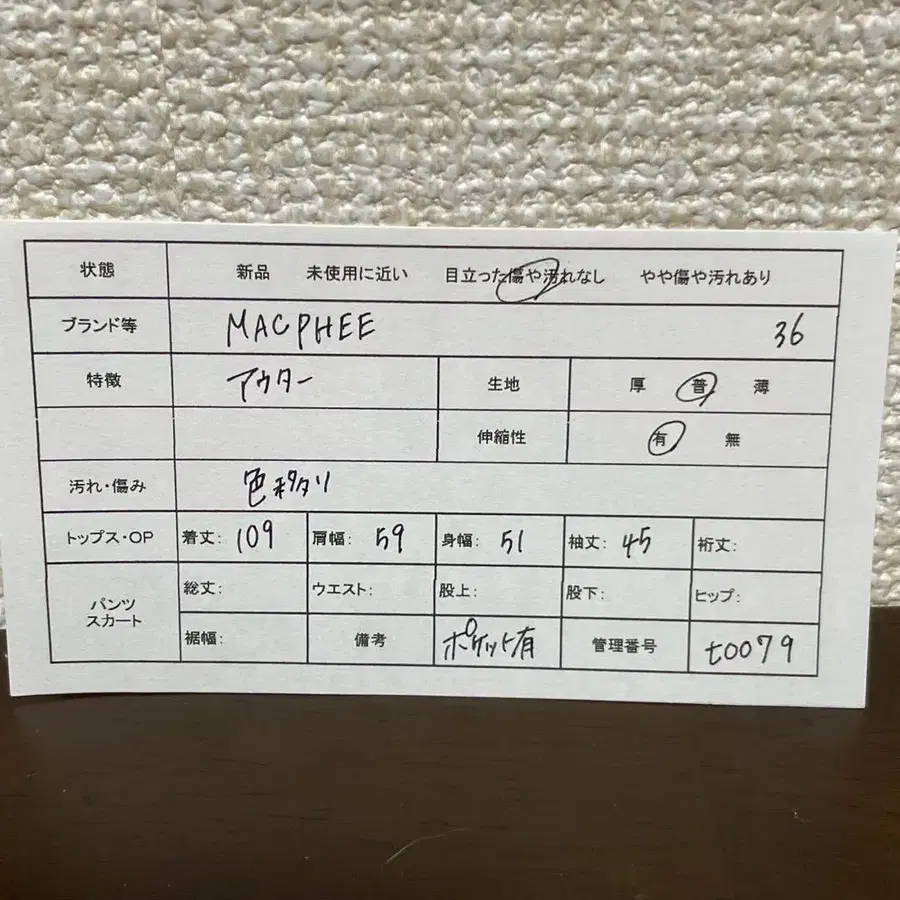 状態 新品 未使用に近い 目立った傷や汚れなし やや傷や汚れあり
ブランド等 MACPHEE 36
特徴 アウター 生地 厚 普 薄
伸縮性 有 無
汚れ・傷み 色移り
トップス・OP 着丈: 109 肩幅: 59 身幅: 51 袖丈: 45 裄丈:
パンツ スカート
総丈: ウエスト: 股上: 股下: ヒップ:
裾幅: 備考 ポケット有 管理番号 t0079